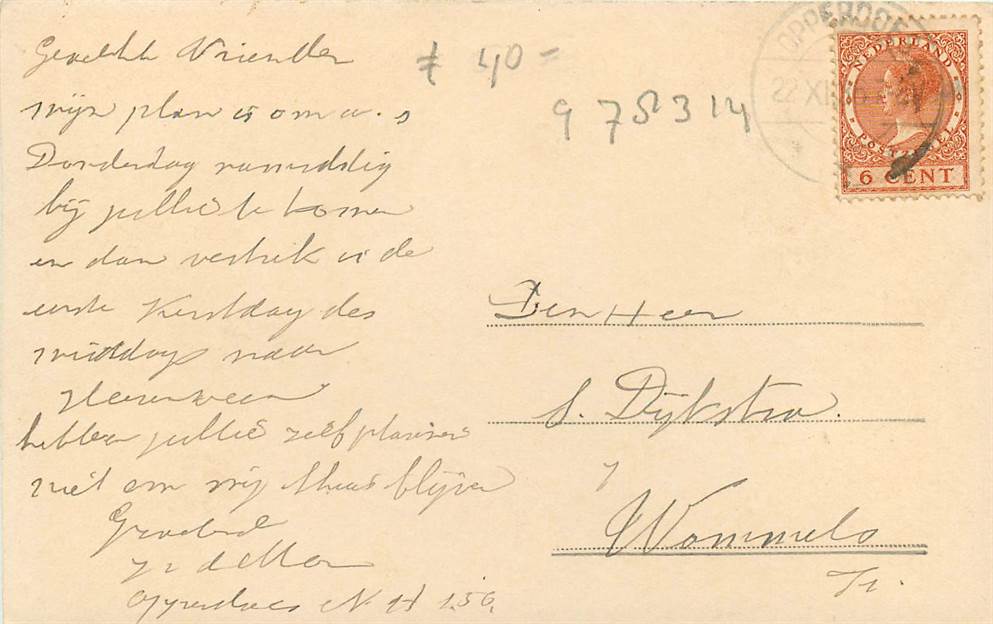 Geachte Vrienden
mijn plan is om a.s
Donderdag namiddag
bij jullie te komen
en dan vertrek ik de
eerste Kerstdag des
middags naar
Heerenveen
hebben jullie zelf plannen
niet om mij thuis blijven
Gegroet
Opperdoes N H 150.
40 =
9 75 3 14
OPPERDOES
22 XII
NEDERLAND
POSTZEGEL
6 CENT
Den Heer
S. Dijkstra.
Wommels
Fr.